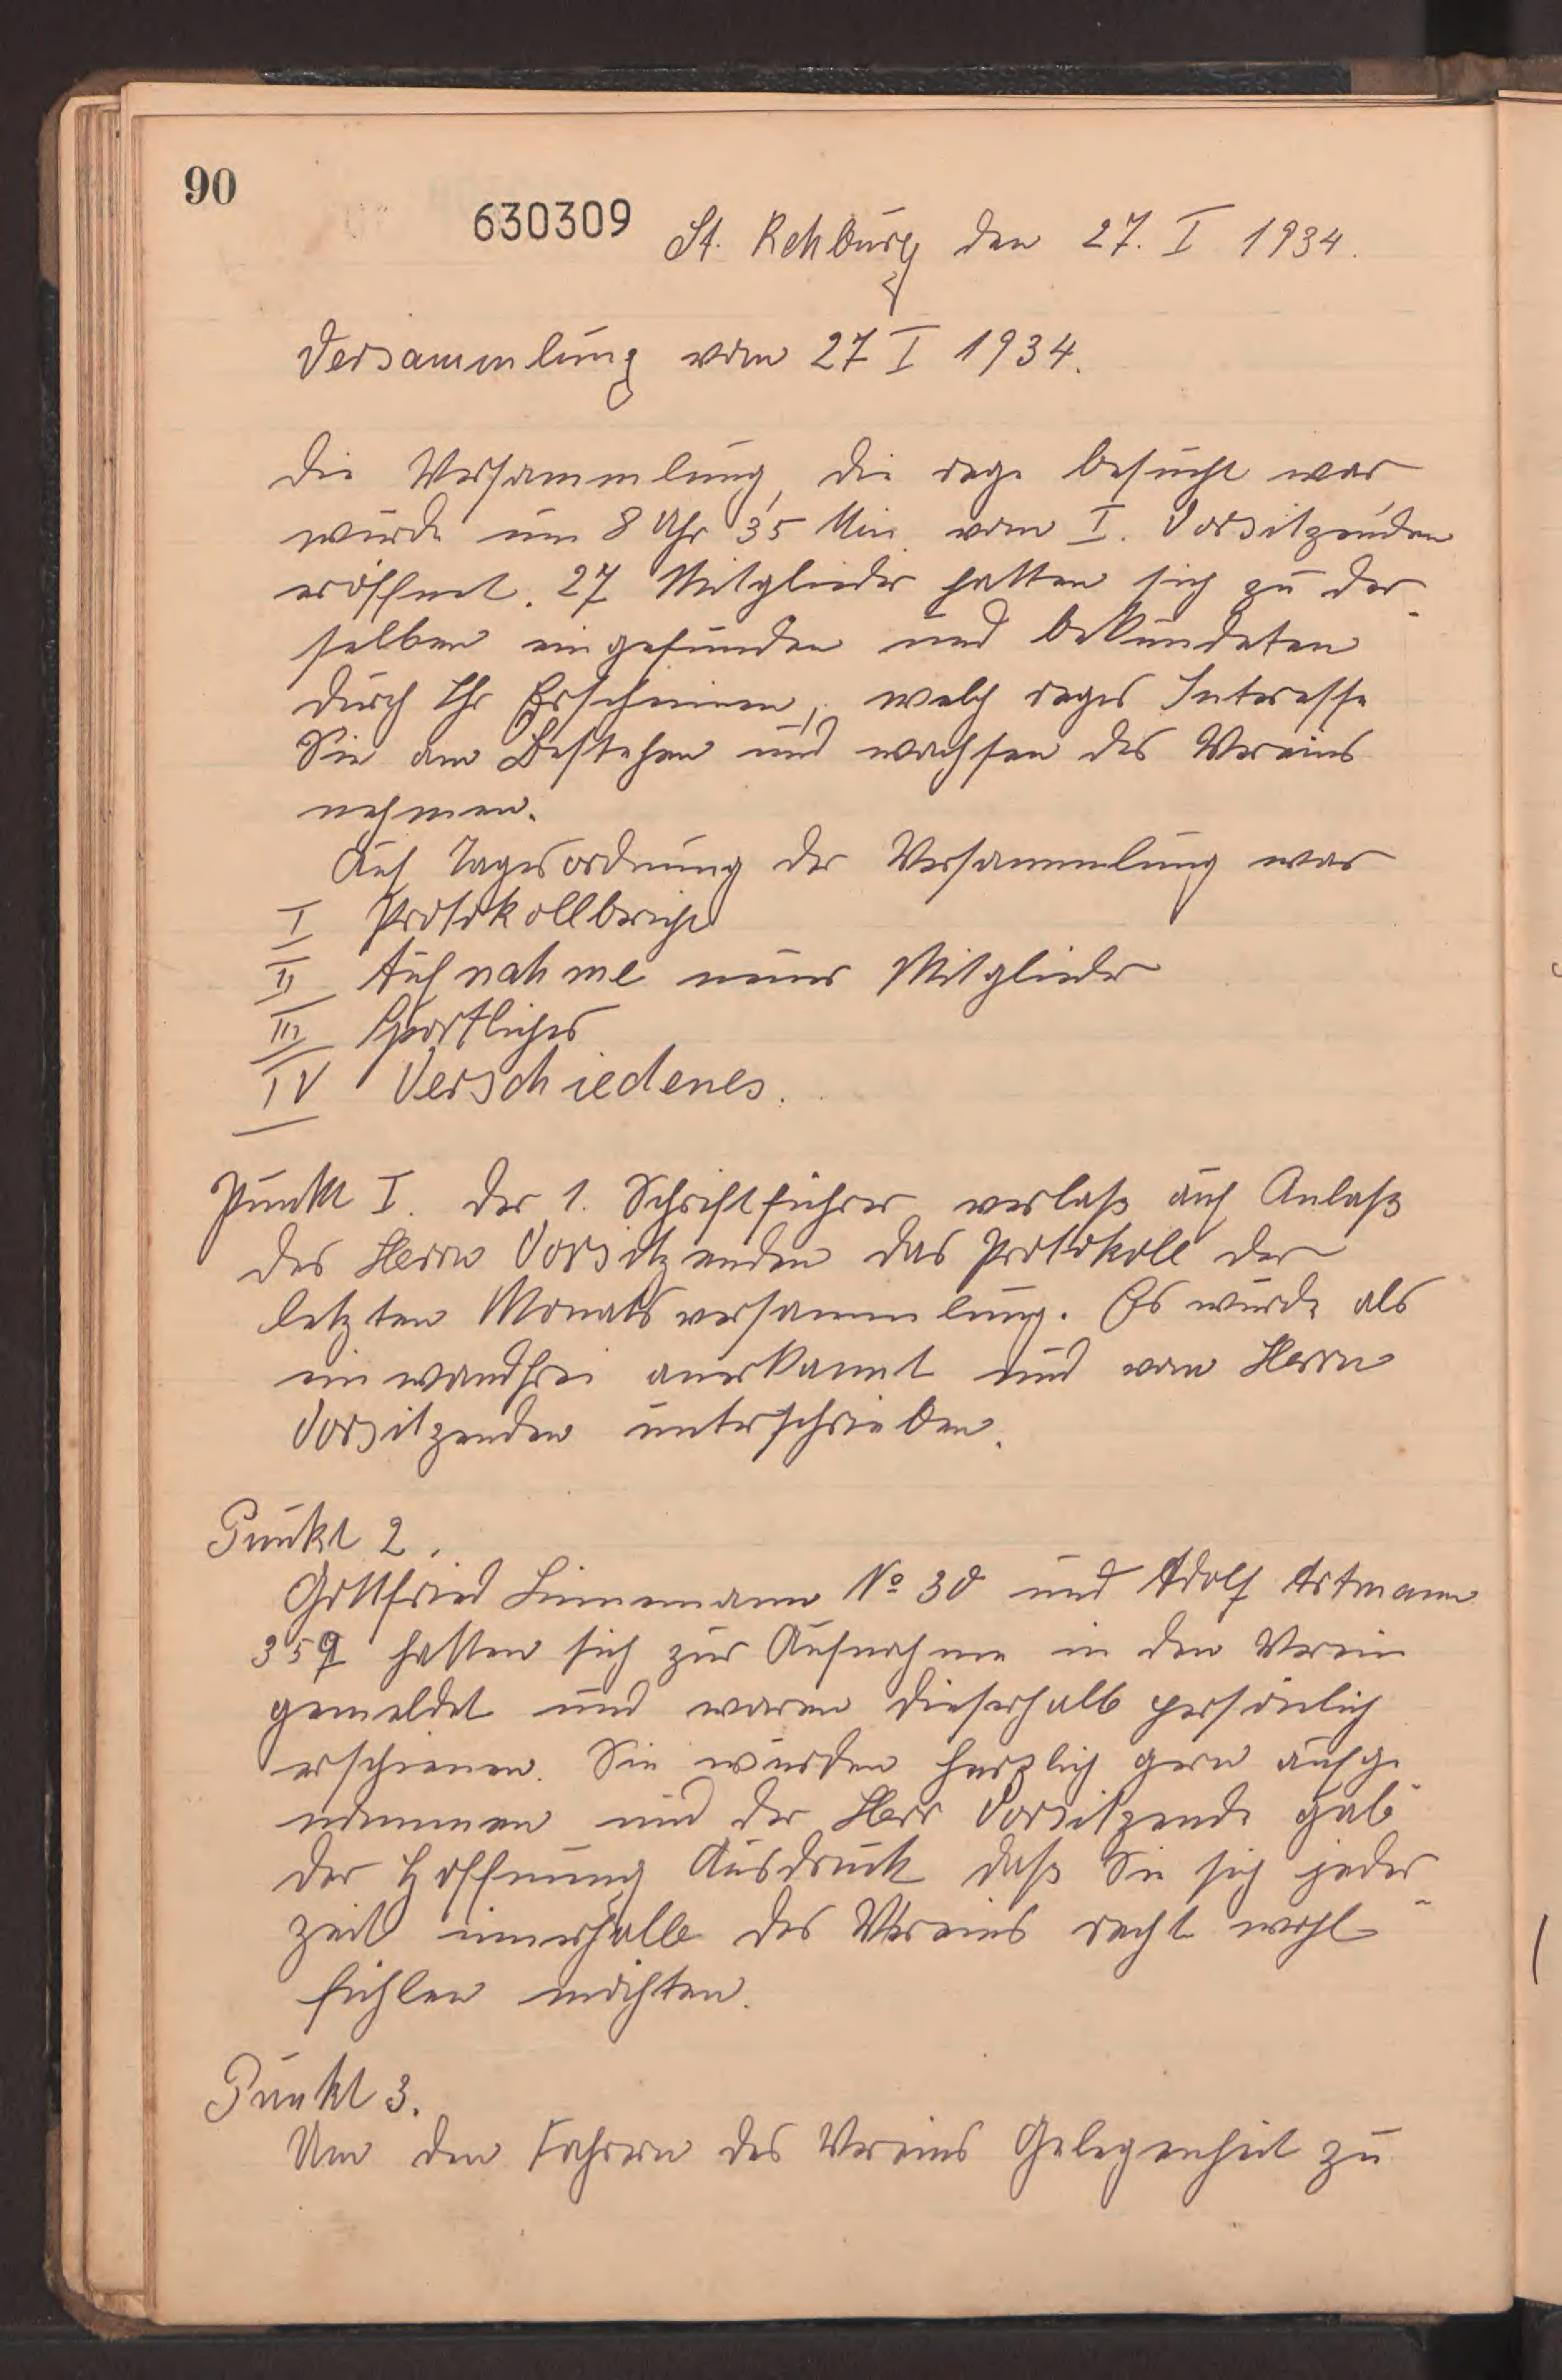 90
630309
St. Rehburg den 27. I 1934.
Versammlung vom 27 I 1934.
Die Versammlung, die rege besucht war
wurde um 8 Uhr 35 Min. vom I. Vorsitzenden
eröffnet. 27 Mitglieder hatten sich zu der-
selben eingefunden und bekundeten
durch Ihr Erscheinen, welch reges Interesse
Sie am Bestehen und wachsen des Vereins
nehmen.
Auf Tagesordnung der Versammlung war
I Protokollbericht
II Aufnahme neuer Mitglieder
III Sportliches
IV Verschiedenes.
Punkt I. Der 1. Schriftführer verlaß auf Anlaß
des Herrn Vorsitzenden das Protokoll der
letzten Monatsversammlung. Es wurde als
einwandfrei anerkannt und vom Herrn
Vorsitzenden unterschrieben.
Punkt 2.
Gottfried Linnemann No 30 und Adolf Artmann
359 hatten sich zur Aufnahme in den Verein
gemeldet und waren dieserhalb persönlich
erschienen. Sie wurden herzlich gern aufge-
nommen und der Herr Vorsitzende gab
der Hoffnung Ausdruck daß Sie sich jeder-
zeit innerhalb des Vereins recht wohl
fühlen möchten.
Punkt 3.
Um den Fahrern des Vereins Gelegenheit zu